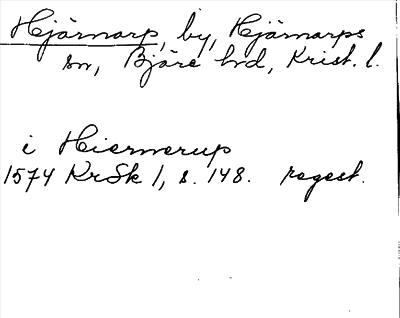 Hjärnarp, by, Hjärnarps
sn, Bjäre hd, Krist. l.
i Hiernerup
1574 KrSk 1, s. 148. regest.